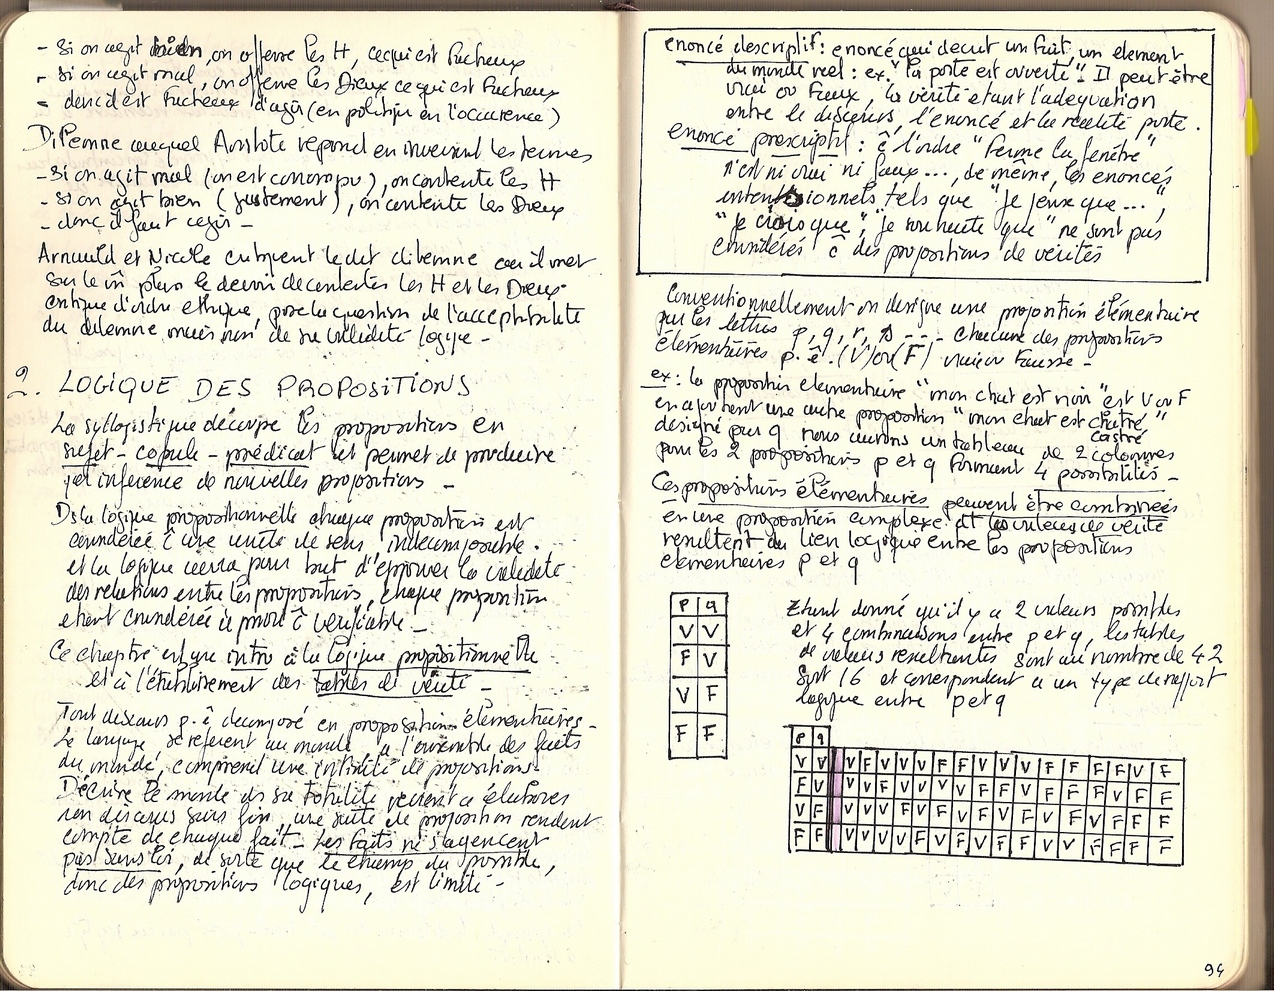 - Si on agit bien, on offense les H, ce qui est fâcheux
- Si on agit mal, on offense les Dieux ce qui est fâcheux
- donc il est fâcheux d'agir (en politique en l'occurence)
Dilemne auquel Aristote répond en inversant les termes
- Si on agit mal (on est corrompu), on contente les H
- si on agit bien (justement), on contente les Dieux
- donc il faut agir -
Arnauld et Nicole critiquent le dit dilemne car il met
sur le m̂ plan le devoir de contenter les H et les Dieux
critique d'ordre ethique, pose la question de l'acceptabilité
du dilemne mais non de sa validité logique -
2. LOGIQUE DES PROPOSITIONS
La syllogistique découpe les propositions en
sujet - copule - prédicat et permet de produire
par inférence de nouvelles propositions -
Ds la logique propositionnelle chaque proposition est
considérée ĉ une unité de sens, indécomposable.
et la logique aura pour but d'éprouver la validité
des relations entre les propositions, chaque proposition
étant considérée à priori ĉ vérifiable -
Ce chapitre est une intro à la logique propositionnelle
et à l'établissement des tables de vérité -
Tout discours p. ê décomposé en proposition élémentaires -
Le langage, se référent au monde, à l'ensemble des faits
du monde, comprend une infinité de propositions -
Décrire le monde ds sa totalité revient à élaborer
un discours sans fin, une suite de proposition rendant
compte de chaque fait - Les faits ne s'agencent
pas sans loi, de sorte que le champ du possible,
donc des propositions logiques, est limité -
enoncé descriptif : enoncé qui decrit un fait, un element
du monde reel : ex. "la porte est ouverte". Il peut être
vrai ou faux, la vérité etant l'adequation
entre le discours, l'enoncé et la realité posée.
enoncé prescriptif : ĉ l'ordre "Ferme la fenêtre"
n'est ni vrai ni faux ..., de même, les enoncés
intentionnels tels que "Je veux que ...",
"je crois que", "je souhaite que" ne sont pas
considérés ĉ des propositions de vérités
Conventionnellement on designe une proposition élémentaire
par les lettres p, q, r, s --- chacune des propositions
élémentaires p. ê. (V) ou (F) vraie ou fausse -
ex : la proposition elementaire "mon chat est noir" est V ou F
en ajoutant une autre proposition "mon chat est châtré"
castré
désigné par q nous aurons un tableau de 2 colonnes
pour les 2 propositions p et q formant 4 possibilités -
Ces propositions élémentaires peuvent être combinées
en une proposition complexe et les valeurs de vérité
resultent du lien logique entre les propositions
elementaires p et q
P q
V V
F V
V F
F F
Etant donné qu'il y a 2 valeurs possibles
et 4 combinaisons entre p et q, les tables
de valeurs resultantes sont au nombre de 4 2
soit 16 et correspondent à un type de rapport
logique entre p et q
P q
V V V F V V V F F V V V F F F F V F
F V V V F V V V V F F V F F F V F F
V F V V V F V F V F V F V F V F F F
F F V V V V F V F V F F V V F F F F
94